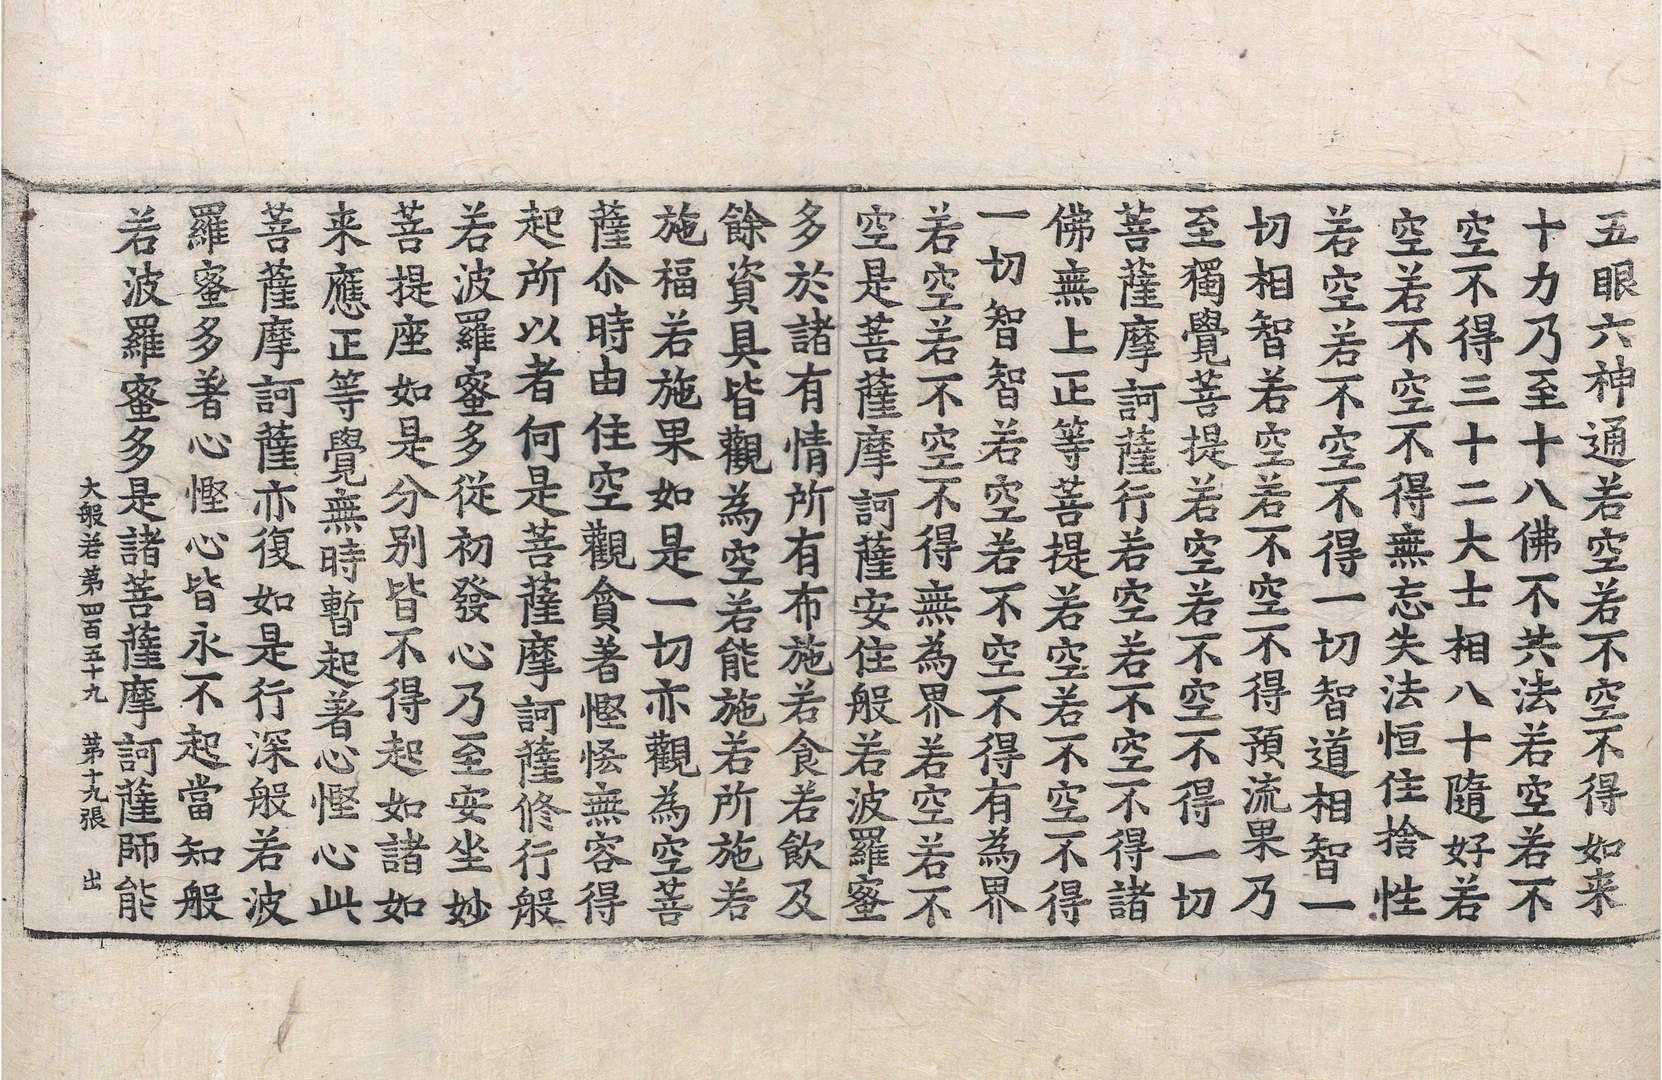 五眼六神通若空若不空不得如来
十力乃至十八佛不共法若空若不
空不得三十二大士相八十隨好若
空若不空不得無忘失法恒住捨性
若空若不空不得一切智道相智一
切相智若空若不空不得預流果乃
至獨覺菩提若空若不空不得一切
菩薩摩訶薩行若空若不空不得諸
佛無上正等菩提若空若不空不得
一切智智若空若不空不得有為界
若空若不空不得無為界若空若不
空是菩薩摩訶薩安住般若波羅蜜
多於諸有情所有布施若食若飲及
餘資具皆觀為空若能施若所施若
施福若施果如是一切亦觀為空菩
薩尒時由住空觀貪著慳悋無容得
起所以者何是菩薩摩訶薩修行般
若波羅蜜多從初發心乃至安坐妙
菩提座如是分別皆不得起如諸如
来應正等覺無時暫起著心慳心此
菩薩摩訶薩亦復如是行深般若波
羅蜜多著心慳心皆永不起當知般
若波羅蜜多是諸菩薩摩訶薩師能
大般若第四百五十九 第十九張 出